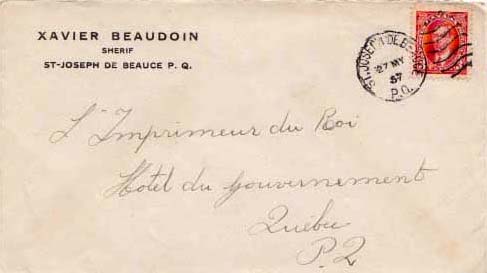 XAVIER BEAUDOIN
SHERIF
ST-JOSEPH DE BEAUCE P. Q.
ST-JOSEPH DE BEAUCE
27 MY
37
P.Q.
L'Imprimeur du Roi
Hôtel du Gouvernement
Québec
P.Q